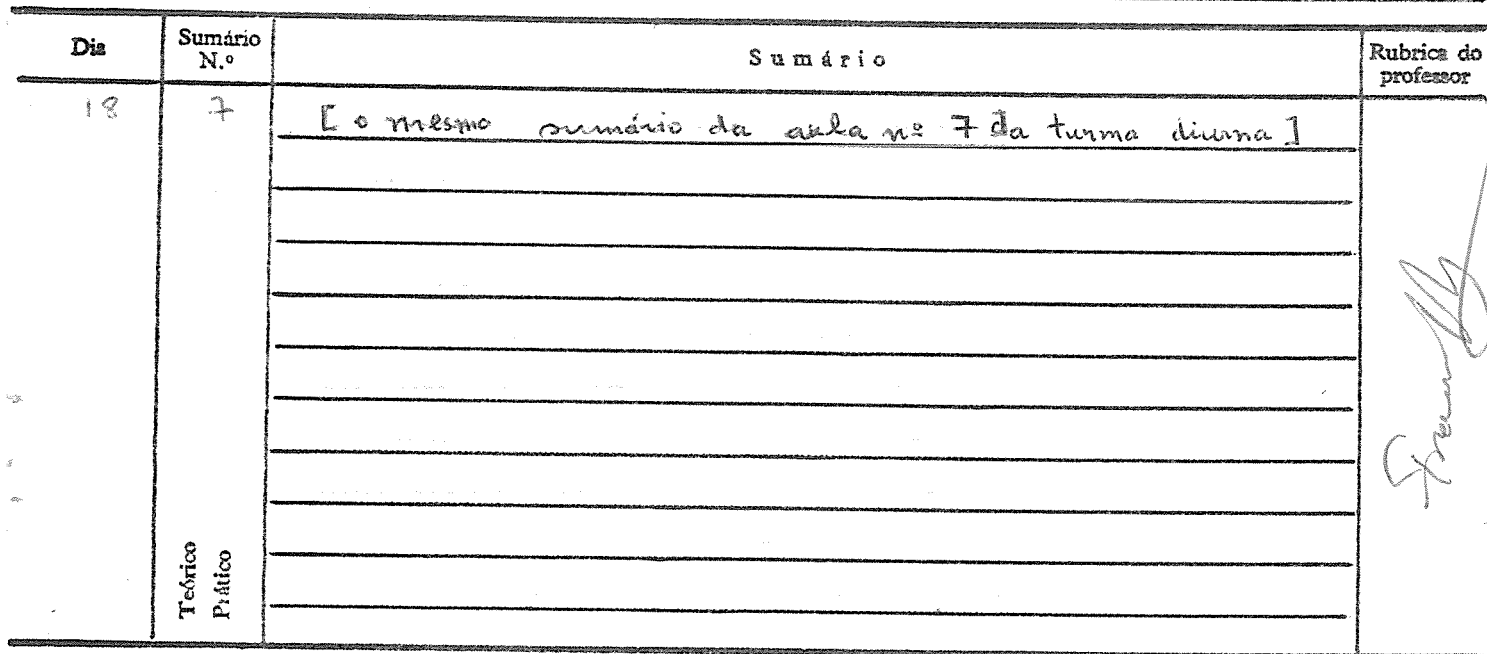 Dia Sumário N.º Sumário Rubrica do professor
18 7 [o mesmo sumário da aula nº 7 da turma diurna]
Teórico
Prático